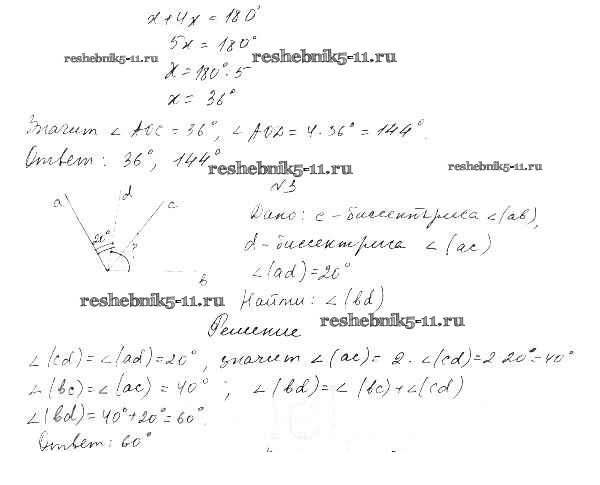 x+4x = 180°
5x = 180°
reshebnik5-11.ru reshebnik5-11.ru
x = 180°:5
x = 36°
Значит ∠AOC = 36°, ∠AOD = 4·36° = 144°.
Ответ: 36°, 144°
reshebnik5-11.ru reshebnik5-11.ru
N3
a d c
20° ?
b
Дано: c - биссектриса ∠(ab),
d - биссектриса ∠(ac)
∠(ad) = 20°
reshebnik5-11.ru Найти: ∠(bd)
Решение reshebnik5-11.ru
∠(cd) = ∠(ad) = 20°, значит ∠(ac) = 2·∠(cd) = 2·20° = 40°
∠(bc) = ∠(ac) = 40°; ∠(bd) = ∠(bc) + ∠(cd)
∠(bd) = 40° + 20° = 60°.
Ответ: 60°